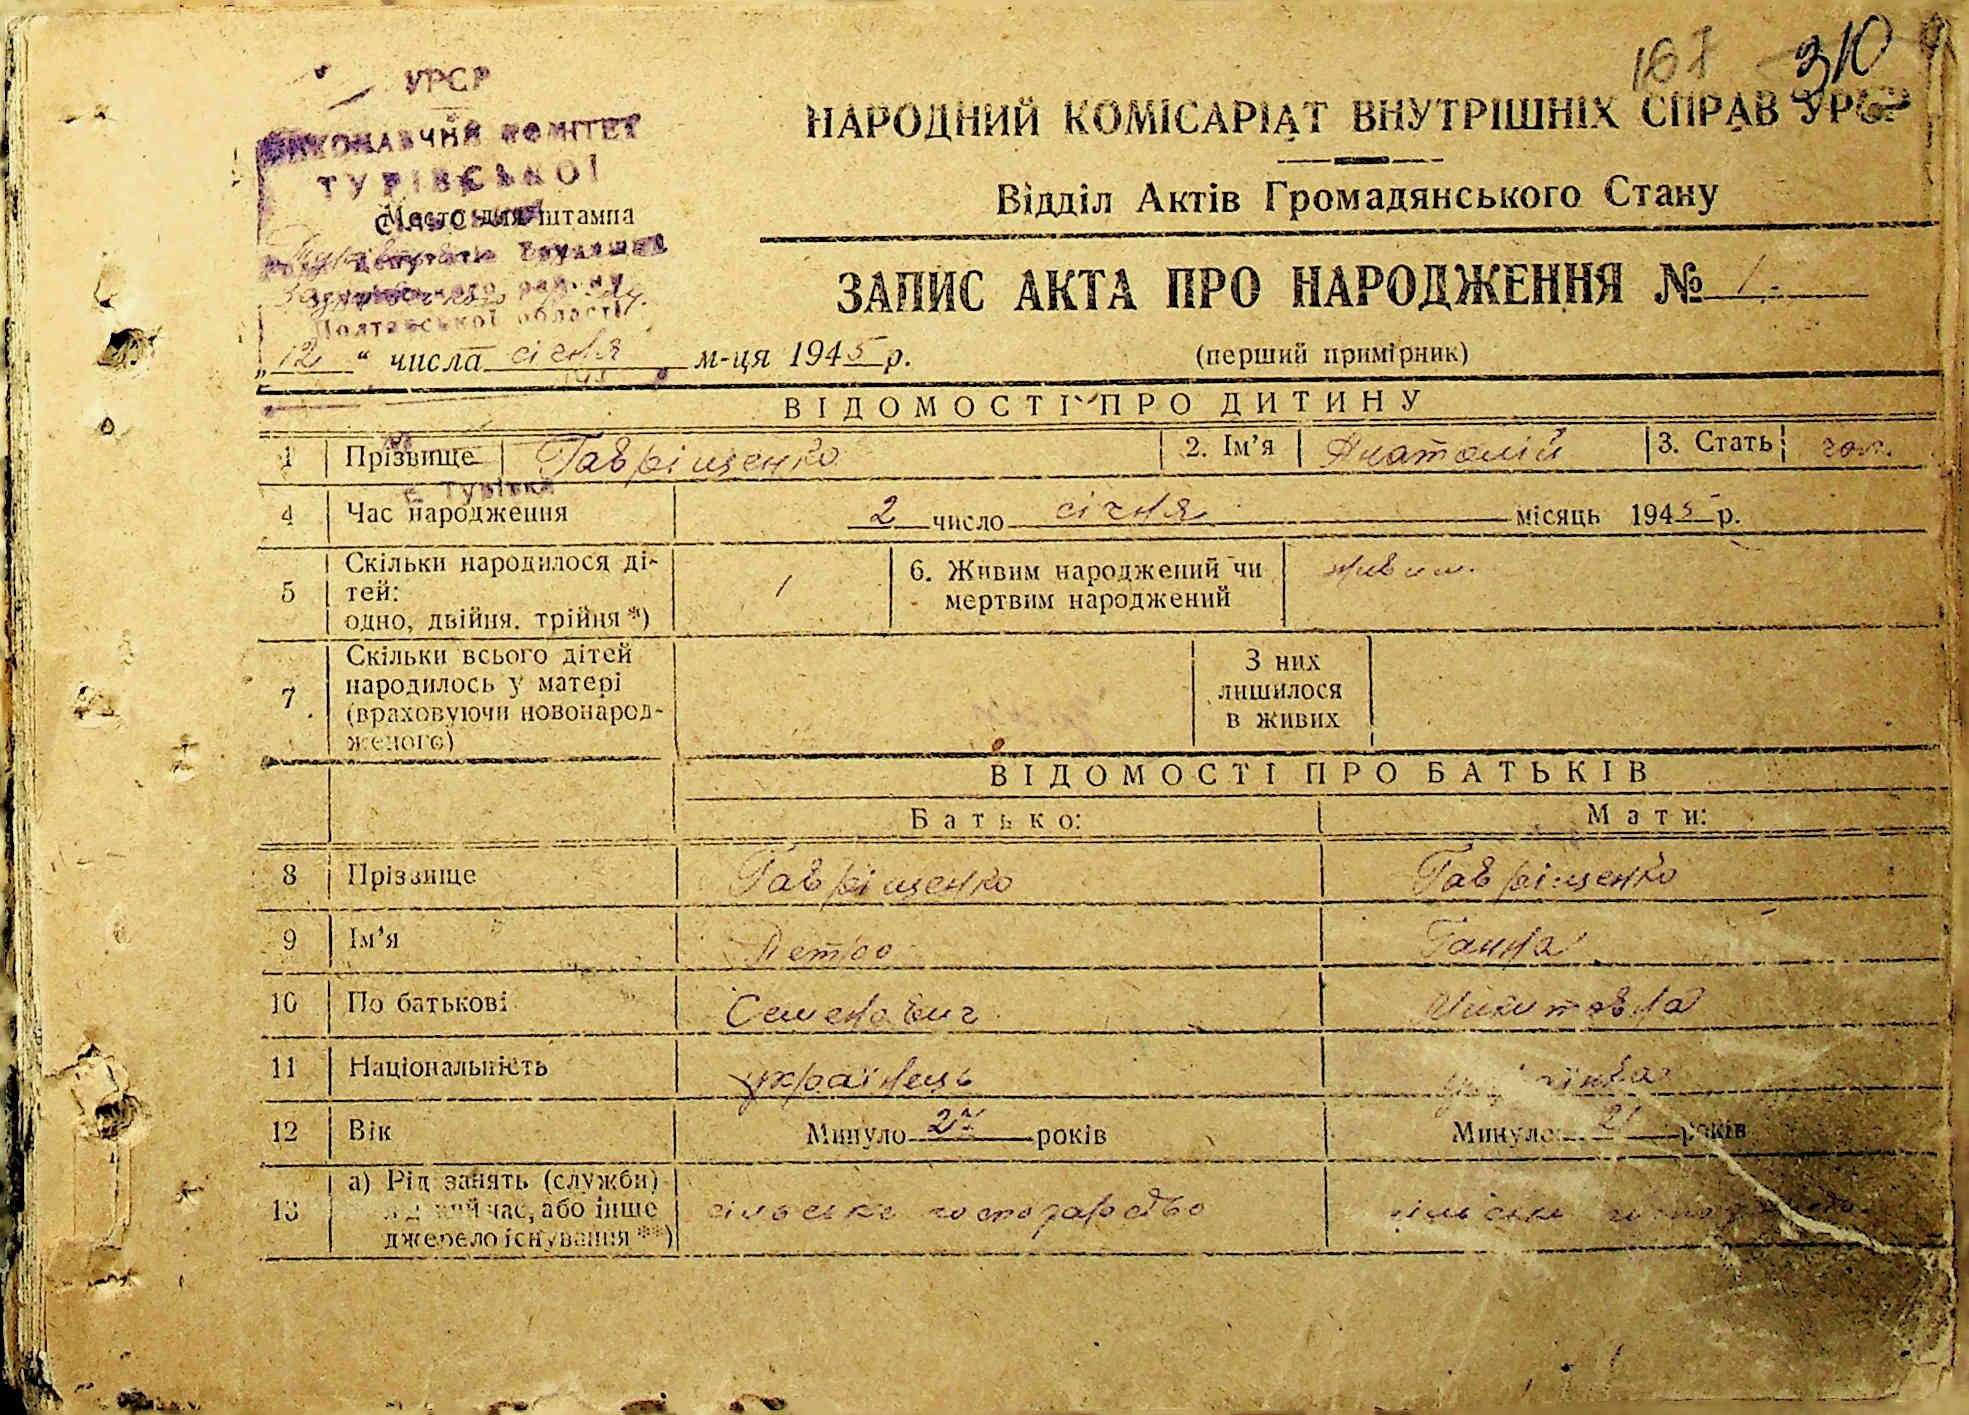 161 310
УРСР
ВИКОНАВЧИЙ КОМІТЕТ
ТУРІВСЬКОЇ
Место для штампа
Депутатів Трудящих
Полтавської області
НАРОДНИЙ КОМІСАРІАТ ВНУТРІШНІХ СПРАВ УРСР
Відділ Актів Громадянського Стану
ЗАПИС АКТА ПРО НАРОДЖЕННЯ № 1.
„12“ числа січня м-ця 1945 р.
(перший примірник)
ВІДОМОСТІ ПРО ДИТИНУ
1 Прізвище Гавріщенко 2. Ім’я Анатолій 3. Стать чол.
с. Турівка
4 Час народження 2 число січня місяць 1945 р.
5 Скільки народилося ді-
тей:
одно, двійня, трійня *) 1
6. Живим народжений чи
мертвим народжений живим.
7 Скільки всього дітей
народилось у матері
(враховуючи новонарод-
женого)
З них
лишилося
в живих
ВІДОМОСТІ ПРО БАТЬКІВ
Батько: Мати:
8 Прізвище Гавріщенко Гавріщенко
9 Ім’я Петро Ганна
10 По батькові Семенович Микитовна
11 Національність українець українка
12 Вік Минуло років Минуло 21 років
13 а) Рід занять (служби)
час, або інше
джерело існування **)
сільське господарство сільське господарство